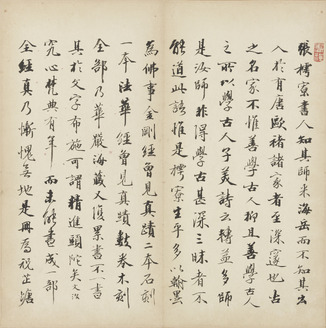 張樗寮書人知其師米海岳而不知其出
入於有唐歐褚諸家者至深邃也古
之名家不惟善學古人抑且善學古人
之所以學古人子美詩云轉益多師
是汝師非得學古甚深三昧者不
能道此語惟是樗寮生平多以翰墨
為佛事金剛經曾見真蹟二本石刻
一本法華經曾見真蹟數卷木刻
全部乃華嚴海藏人復累書不一書
其於文字布施可謂精進頭陀矣又汝
究心梵典有年而未能書成一部
全經真乃慚愧無地是冊為祝止